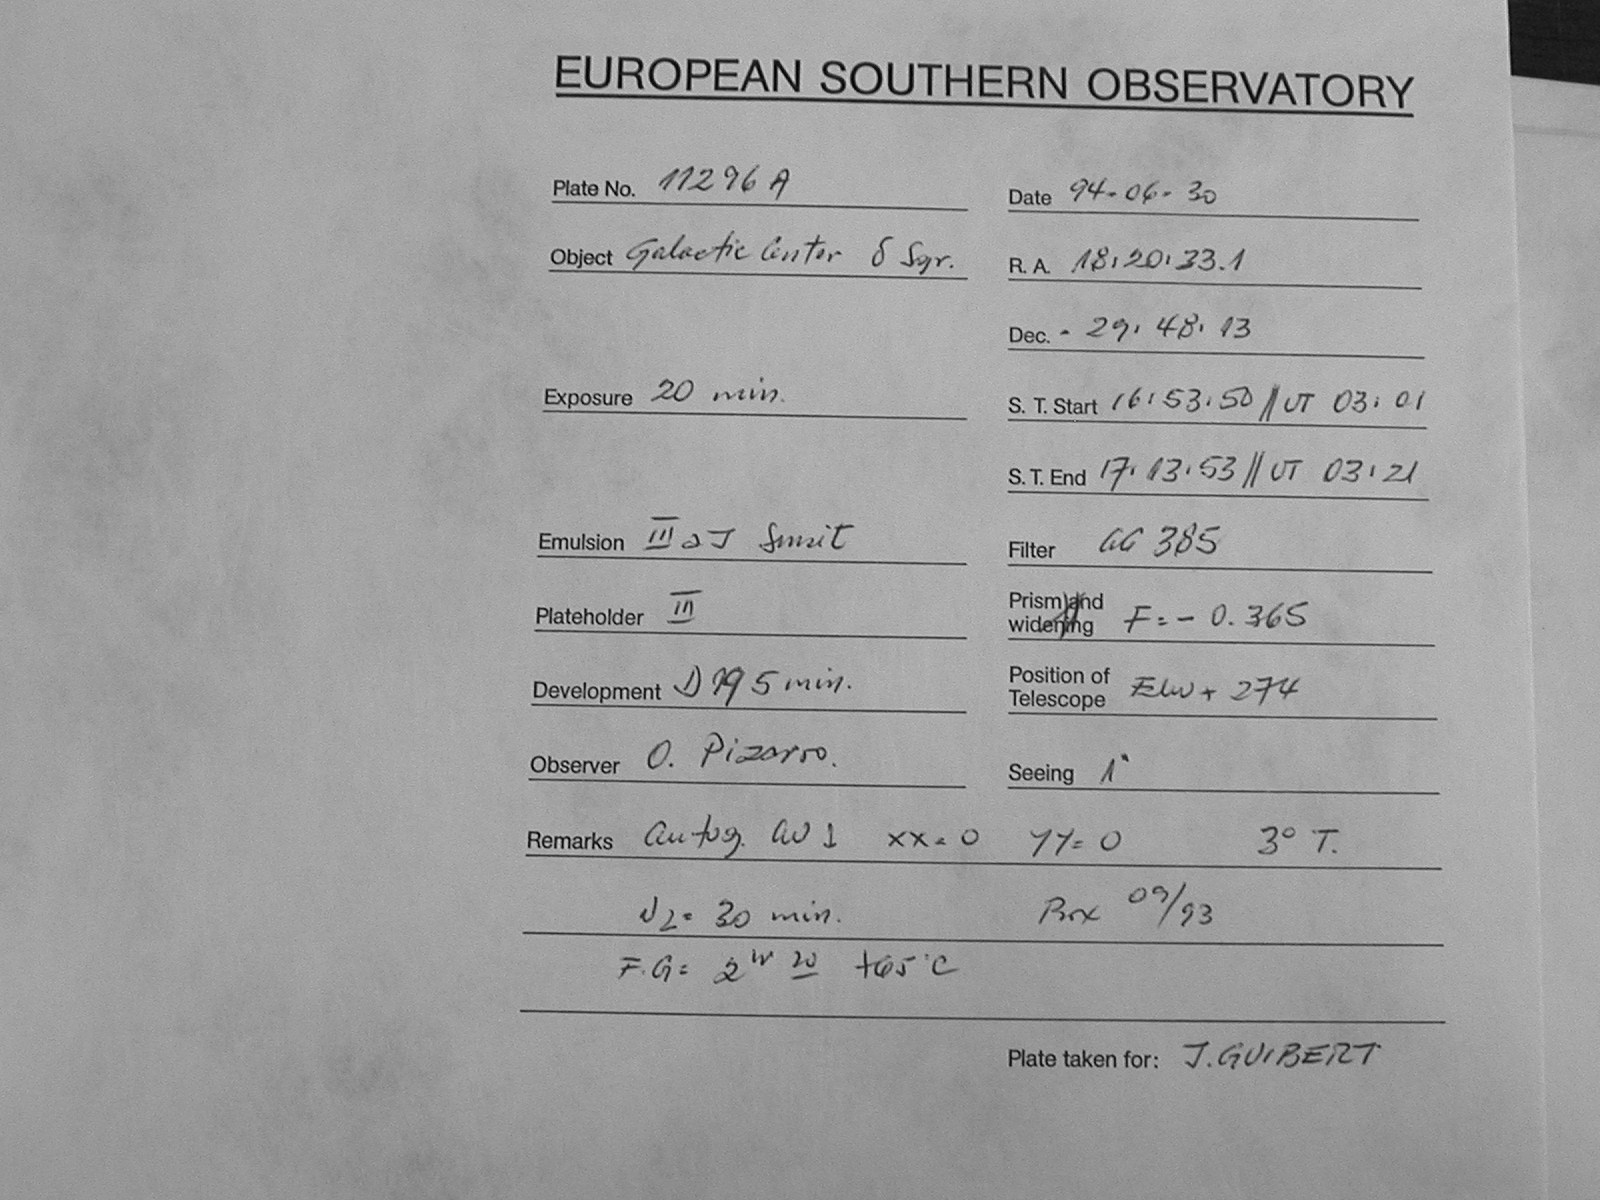 EUROPEAN SOUTHERN OBSERVATORY
Plate No. 11296 A
Date 94-06-30
Object Galactic Center δ Sgr.
R. A. 18:20:33.1
Dec. - 29:48:13
Exposure 20 min.
S. T. Start 16:53:50 // UT 03:01
S. T. End 17:13:53 // UT 03:21
Emulsion III a J
Filter GG 385
Plateholder III
Prism and widening F = - 0.365
Development D 19 5 min.
Position of Telescope + 274
Observer O. Pizarro.
Seeing 1"
Remarks autog. xx = 0 YY = 0 3° T.
N2 = 30 min. 09/93
F.G = +65°C
Plate taken for: J. GUIBERT